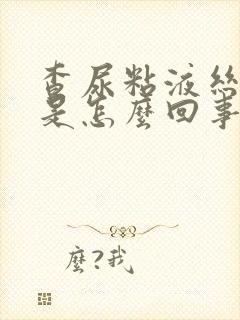 查尿粘液絲
是怎麼回事
麼?我